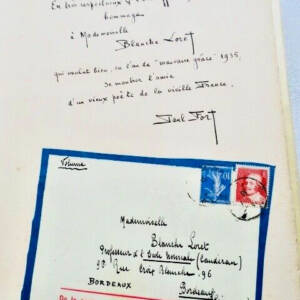 En très respectueux
hommage
à Mademoiselle
Blanche Loret
qui voulut bien, en l'an de "mauvaise grâce" 1935,
se montrer l'amie
d'un vieux poète de la vieille France.
Paul Fort
Volume
Mademoiselle
Blanche Loret
Professeur à l'École Normale (Caudéran)
98 Rue Croix Blanche, 96
Bordeaux
BORDEAUX